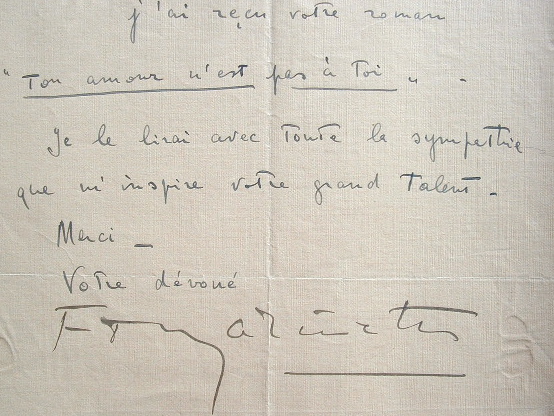 j'ai reçu votre roman
"Ton amour n'est pas à Toi" -
Je le lirai avec Toute la sympathie
que m'inspire votre grand Talent -
Merci -
Votre dévoué